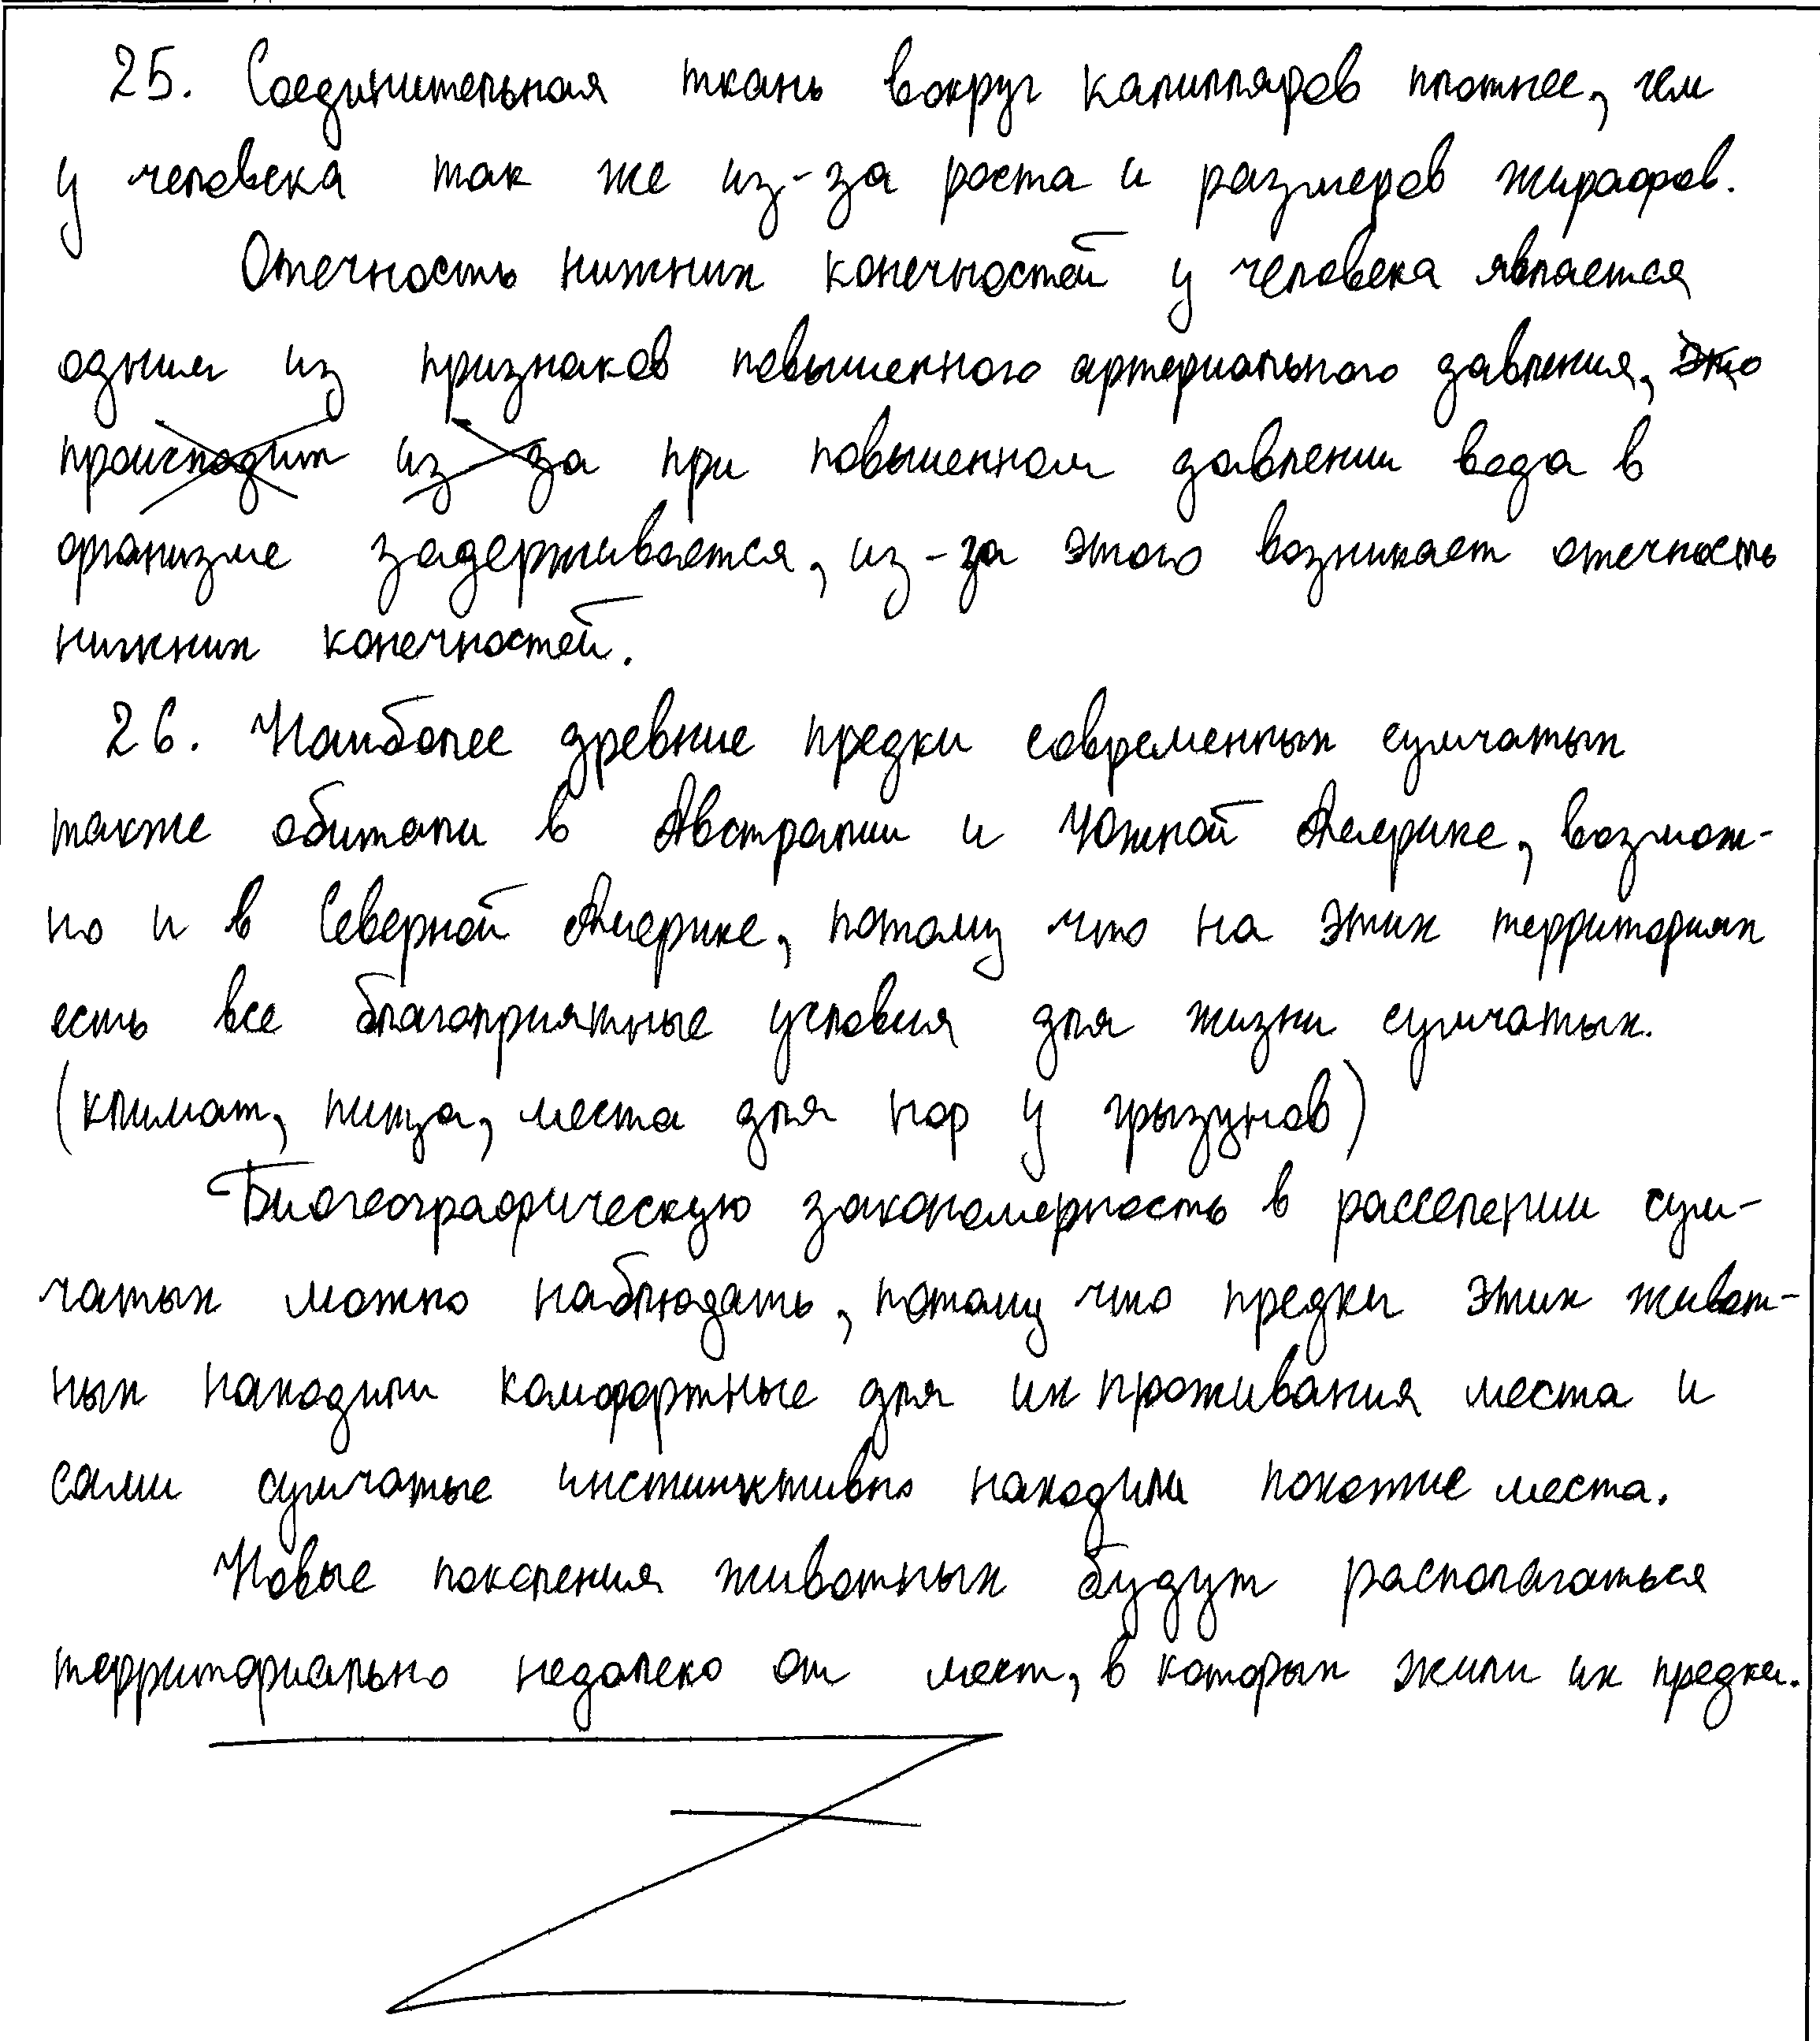 25. Соединительная ткань вокруг капилляров плотнее, чем
у человека так же из-за роста и размеров жирафов.
Отечность нижних конечностей у человека является
одним из признаков повышенного артериального давления, это
происходит из-за при повышенном давлении вода в
организме задерживается, из-за этого возникает отечность
нижних конечностей.
26. Наиболее древние предки современных сумчатых
также обитали в Австралии и Южной Америке, возмож-
но и в Северной Америке, потому что на этих территориях
есть все благоприятные условия для жизни сумчатых.
(климат, пища, места для нор у грызунов)
Биогеографическую закономерность в расселении сум-
чатых можно наблюдать, потому что предки этих живот-
ных находили комфортные для их проживания места и
сами сумчатые инстинктивно находили похожие места.
Новые поколения животных будут располагаться
территориально недалеко от мест, в которых жили их предки.